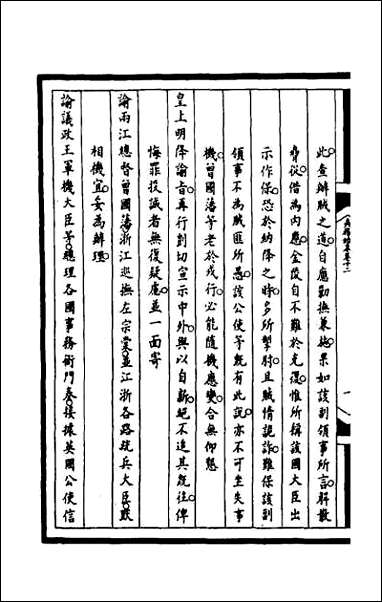 此查辦賊之道自應勦撫兼施果如該副領事所言解散
脅從借為內應金陵自不難於克復惟所稱該國大臣出
示作保恐於納降之時多所掣肘且賊情詭詐難保該副
領事不為賊匪所愚該公使等既有此說亦不可坐失事
機曾國藩等老於戎行必能隨機應變合無仰懇
皇上明降諭旨再行剴切宣示中外與以自新絕不追其既往俾
悔罪投誠者無復疑慮並一面寄
諭兩江總督曾國藩浙江巡撫左宗棠並江浙各路統兵大臣默
相機宜妥為辦理
諭議政王軍機大臣等總理各國事務衙門奏接據英國公使信